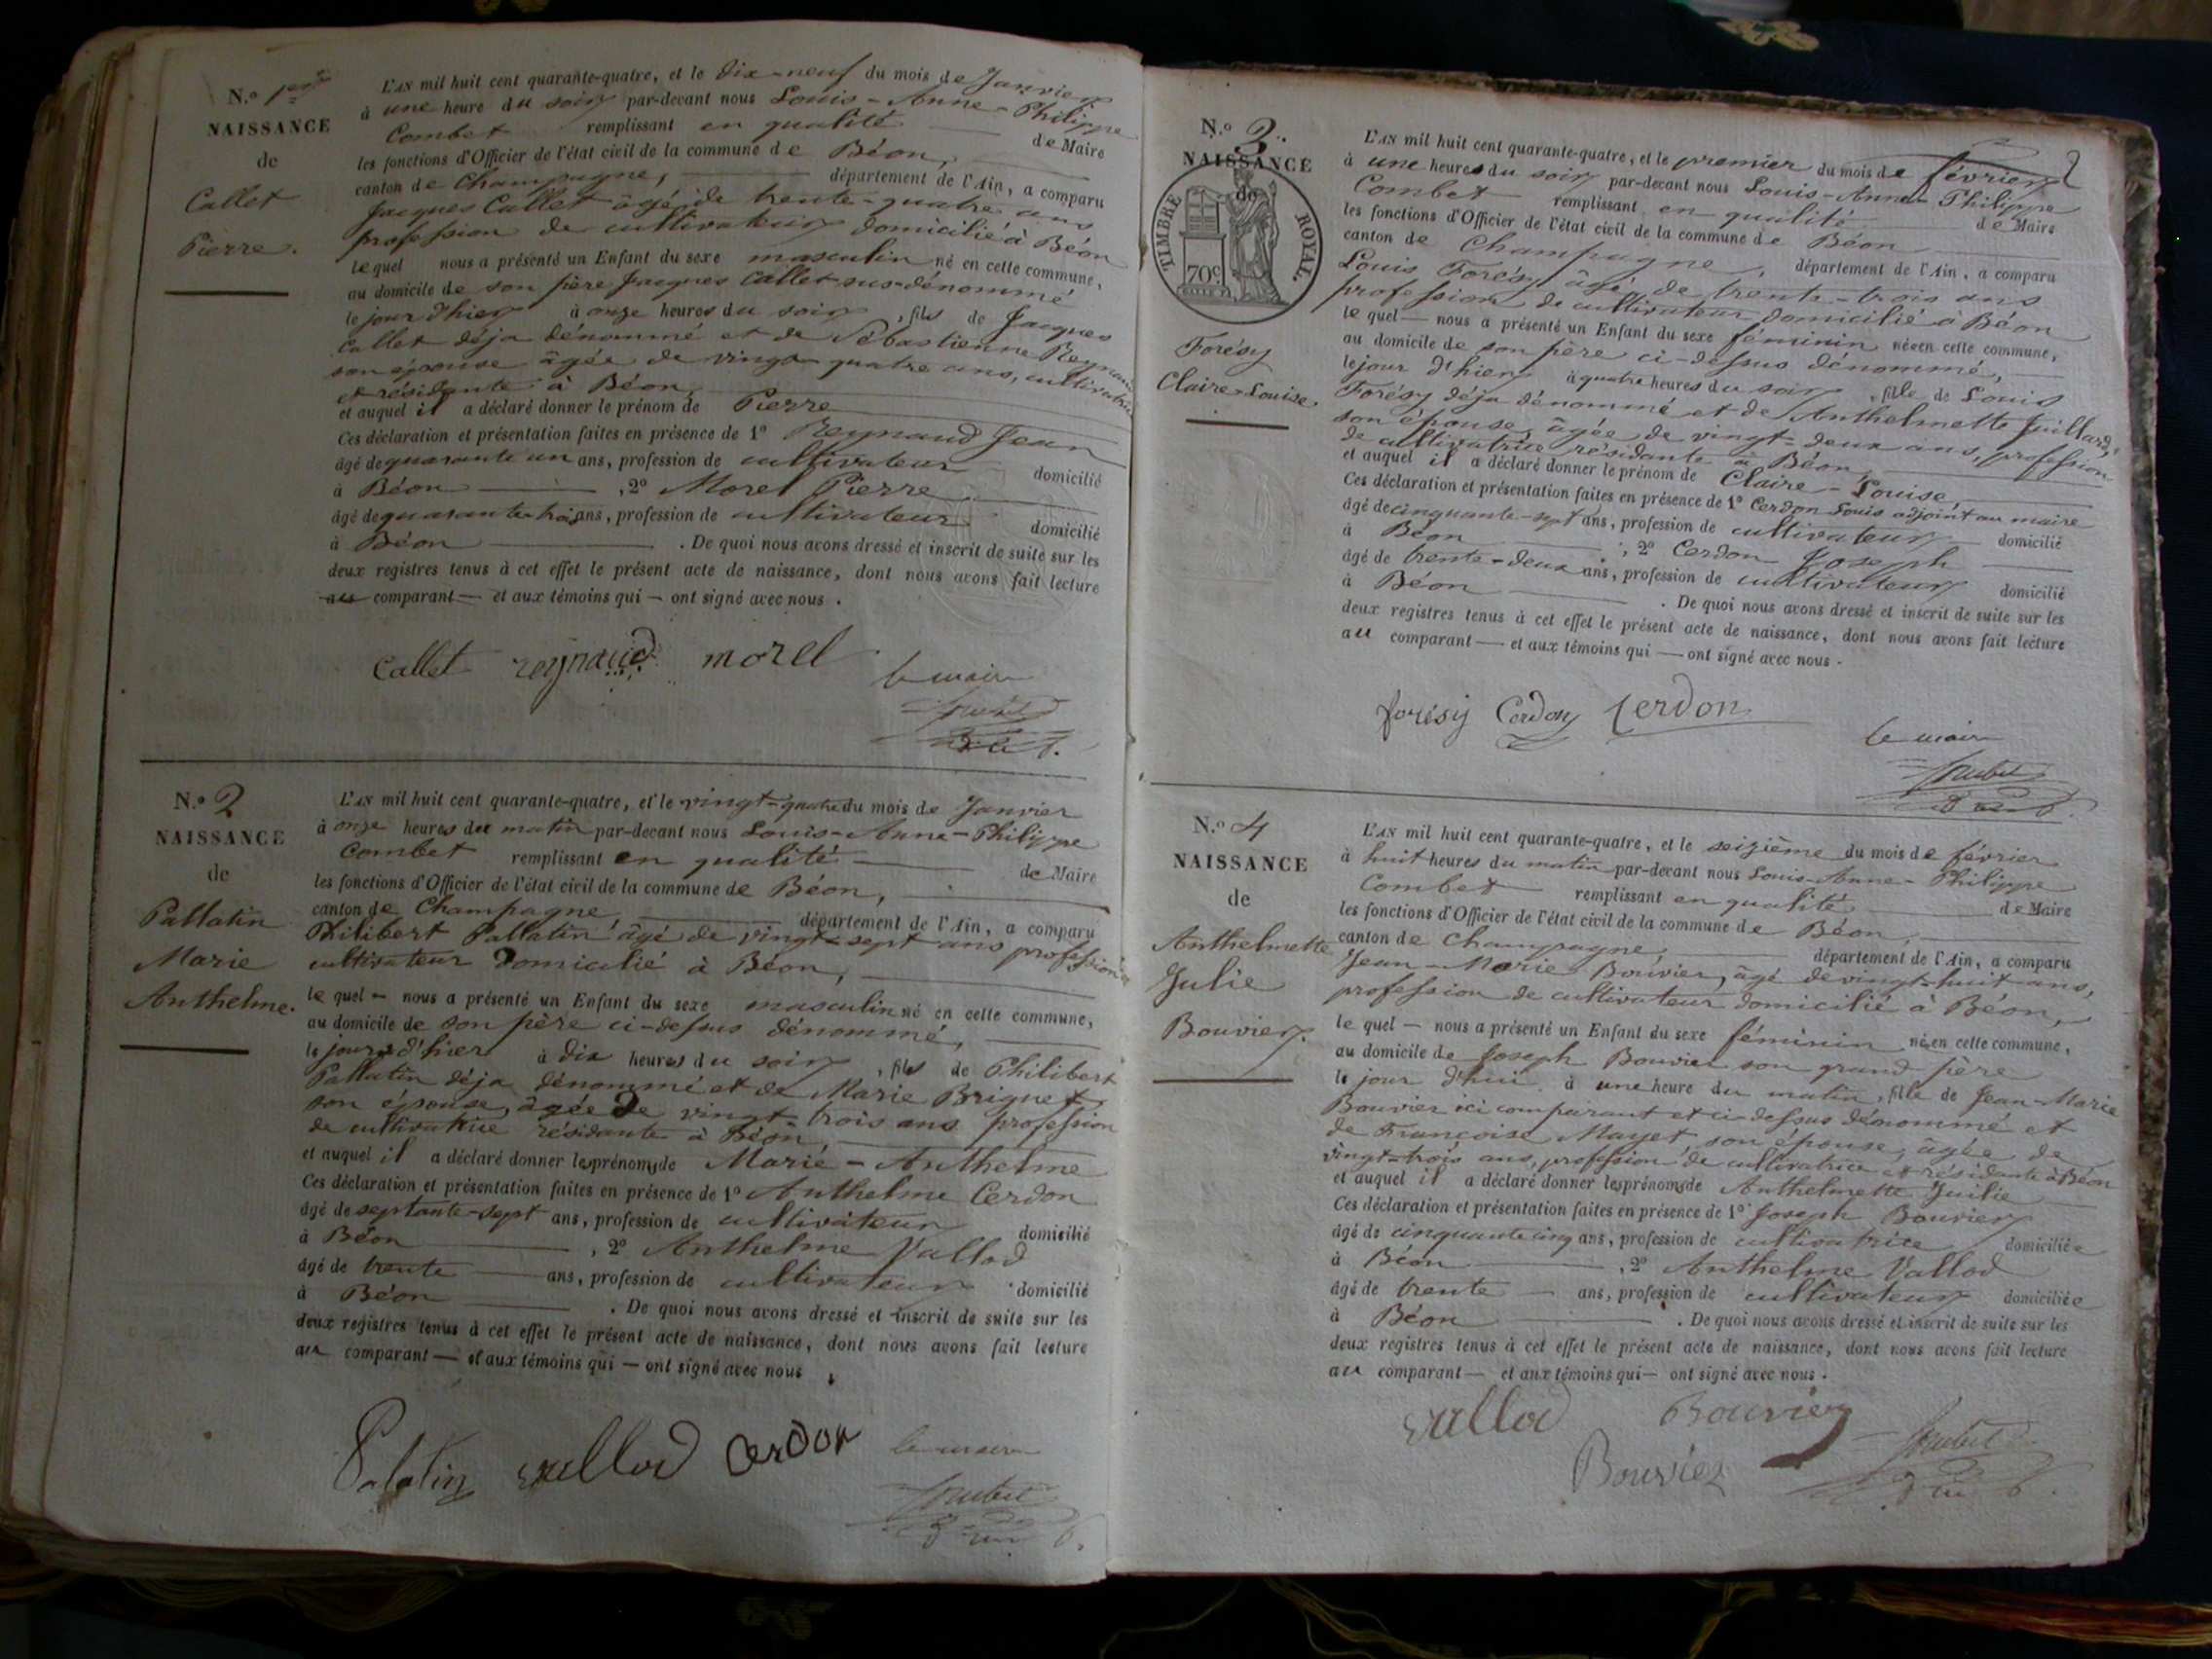 N.° 1er
NAISSANCE
de
Callet
Pierre.
L'AN mil huit cent quarante-quatre, et le dix-neuf du mois de Janvier
à une heure du soir par-devant nous Louis-Anne-Philippe
Combet remplissant en qualité de Maire
les fonctions d'Officier de l'état civil de la commune de Béon,
canton de Champagne, département de l'Ain, a comparu
Jacques Callet âgé de trente-quatre ans
profession de cultivateur domicilié à Béon
lequel nous a présenté un Enfant du sexe masculin né en cette commune,
au domicile de son père Jacques Callet sus-dénommé
le jour d'hier à onze heures du soir, fils de Jacques
Callet déja dénommé et de Sébastienne Reynaud
son épouse âgée de vingt-quatre ans, cultivatrice
et résidante à Béon,
et auquel il a déclaré donner le prénom de Pierre
Ces déclaration et présentation faites en présence de 1° Reynaud Jean
âgé de quarante un ans, profession de cultivateur domicilié
à Béon, 2° Morel Pierre
âgé de quarante trois ans, profession de cultivateur domicilié
à Béon. De quoi nous avons dressé et inscrit de suite sur les
deux registres tenus à cet effet le présent acte de naissance, dont nous avons fait lecture
au comparant — et aux témoins qui — ont signé avec nous.
Callet reynaud morel
le maire
N.° 2
NAISSANCE
de
Pallatin
Marie
Anthelme.
L'AN mil huit cent quarante-quatre, et le vingt-quatre du mois de Janvier
à onze heures du matin par-devant nous Louis-Anne-Philippe
Combet remplissant en qualité de Maire
les fonctions d'Officier de l'état civil de la commune de Béon,
canton de Champagne, département de l'Ain, a comparu
Philibert Pallatin âgé de vingt-sept ans profession de
cultivateur domicilié à Béon,
le quel — nous a présenté un Enfant du sexe masculin né en cette commune,
au domicile de son père ci-dessus dénommé,
le jour d'hier à dix heures du soir, fils de Philibert
Pallatin déja dénommé et de Marie Brignet
son épouse, âgée de vingt-trois ans profession
de cultivatrice résidante à Béon,
et auquel il a déclaré donner les prénoms de Marie-Anthelme
Ces déclaration et présentation faites en présence de 1° Anthelme Cerdon
âgé de septante-sept ans, profession de cultivateur domicilié
à Béon, 2° Anthelme Vallod
âgé de trente ans, profession de cultivateur domicilié
à Béon. De quoi nous avons dressé et inscrit de suite sur les
deux registres tenus à cet effet le présent acte de naissance, dont nous avons fait lecture
au comparant — et aux témoins qui — ont signé avec nous.
Palatin vallod Cerdon
le maire
2
N.° 3.
NAISSANCE
de
TIMBRE ROYAL.
70c
Forésy
Claire-Louise.
L'AN mil huit cent quarante-quatre, et le premier du mois de février
à une heures du soir par-devant nous Louis-Anne-Philippe
Combet remplissant en qualité de Maire
les fonctions d'Officier de l'état civil de la commune de Béon
canton de Champagne, département de l'Ain, a comparu
Louis Forésy âgé de trente-trois ans
profession de cultivateur domicilié à Béon
le quel — nous a présenté un Enfant du sexe féminin née en cette commune,
au domicile de son père ci-dessus dénommé,
le jour d'hier à quatre heures du soir, fille de Louis
Forésy déja dénommé et de Anthelmette Juilland
son épouse, âgée de vingt-deux ans, profession
de cultivatrice résidante à Béon
et auquel il a déclaré donner le prénom de Claire-Louise,
Ces déclaration et présentation faites en présence de 1° Cerdon Louis adjoint au maire
âgé de cinquante-sept ans, profession de cultivateur domicilié
à Béon, 2° Cerdon Joseph
âgé de trente-deux ans, profession de cultivateur domicilié
à Béon. De quoi nous avons dressé et inscrit de suite sur les
deux registres tenus à cet effet le présent acte de naissance, dont nous avons fait lecture
au comparant — et aux témoins qui — ont signé avec nous.
forésy Cerdon Cerdon
le maire
N.° 4
NAISSANCE
de
Anthelmette
Julie
Bouvier.
L'AN mil huit cent quarante-quatre, et le seizième du mois de février
à huit heures du matin par-devant nous Louis-Anne-Philippe
Combet remplissant en qualité de Maire
les fonctions d'Officier de l'état civil de la commune de Béon,
canton de Champagne, département de l'Ain, a comparu
Jean-Marie Bouvier, âgé de vingt-huit ans,
profession de cultivateur domicilié à Béon,
le quel — nous a présenté un Enfant du sexe féminin née en cette commune,
au domicile de Joseph Bouvier son grand père
le jour d'hui à une heure du matin, fille de Jean-Marie
Bouvier ici comparant et ci-dessus dénommé et
de Françoise Mayet son épouse, âgée de
vingt-trois ans, profession de cultivatrice et résidante à Béon
et auquel il a déclaré donner les prénoms de Anthelmette Juilie
Ces déclaration et présentation faites en présence de 1° Joseph Bouvier
âgé de cinquante cinq ans, profession de cultivatrice domiciliée
à Béon, 2° Anthelme Vallod
âgé de trente — ans, profession de cultivateur domiciliée
à Béon. De quoi nous avons dressé et inscrit de suite sur les
deux registres tenus à cet effet le présent acte de naissance, dont nous avons fait lecture
au comparant — et aux témoins qui — ont signé avec nous.
vallod Bouvier
Bouvier